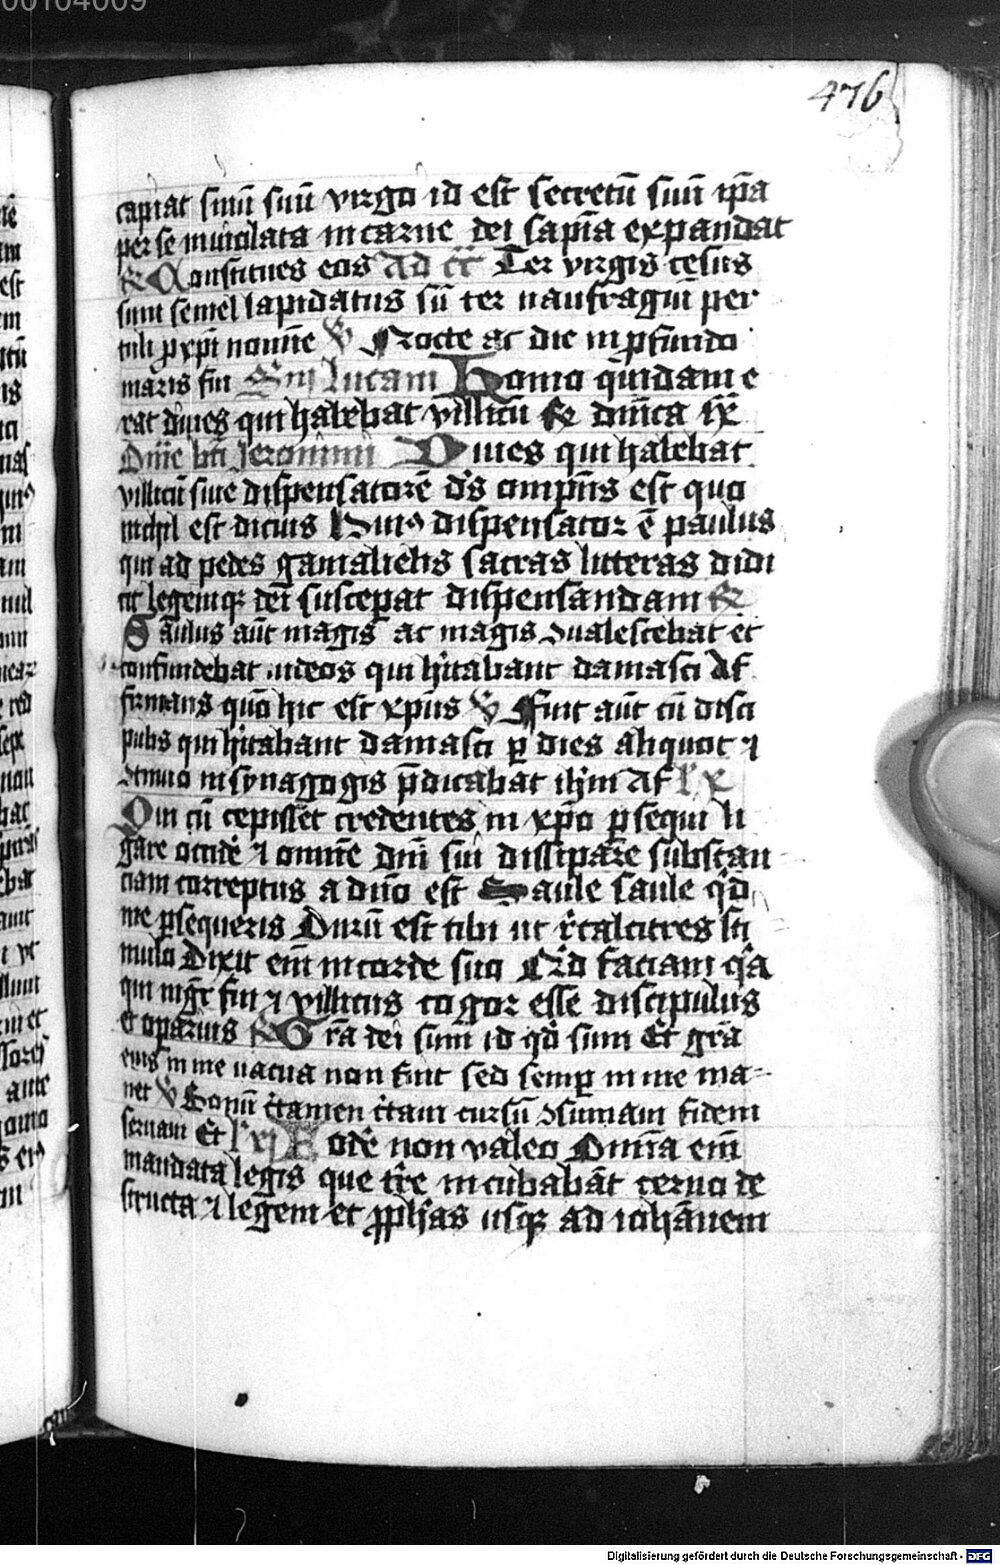 00104009
476
capiat sinū suū virgo id est secretū suū ip̄a
per se inuiolata in carne dei sapīa expandat
R Constitues eos Ad cc̄ Ter virgis cesus
sum semel lapidatus sū ter naufragiū per
tuli p xp̄i noīe V Nocte ac die in p̄fundo
maris fui Sm̄ lucam Homo quidam e
rat diues qui habebat villicū R dn̄ica ix
Om̄e bt̄i Jeronimi Diues qui habebat
villicū siue dispensatorē d̄s omp̄ns est quo
nichil est dicius Huiꝰ dispensator ē paulus
qui ad pedes gamalielis sacras litteras didi
cit legemqꝫ dei susceperat dispensandam R
Saulus aūt magis ac magis ꝯualescebat et
confundebat iudeos qui hītabant damasci Af
firmans quō hic est xp̄us V Fuit aūt cū disci
pulis qui hītabant damasci ꝑ dies aliquot ⁊
ꝯtinuo in synagogis p̄dicabat ih̄m Af l̄ x
Qui cū cepisset credentes in xp̄o ꝑsequi li
gare occide᷑ ⁊ omnē dn̄i sui dissipare substan
ciam correptus a dn̄o est Saule saule qͥd
me ꝑsequeris Durū est tibi ut r̄calcitres sti
mulo Dixit em̄ in corde suo Qͥd faciam qͥa
qui mḡr fui ⁊ villicus cogor esse discipulus
et oparius R Gr̄a dei sum id qd̄ sum Et grā
eius in me uacua non fuit sed semꝑ in me ma-
net V Bonū c̄tamen c̄taui cursū ꝯsumaui fidem
seruaui Et l̄ xi Fode᷑ non valeo Omīa em̄
mandata legis que tr̄e incubabāt cerno de
structa ⁊ legem et ꝓph̄as usqꝫ ad iohānem
Digitalisierung gefördert durch die Deutsche Forschungsgemeinschaft - DFG